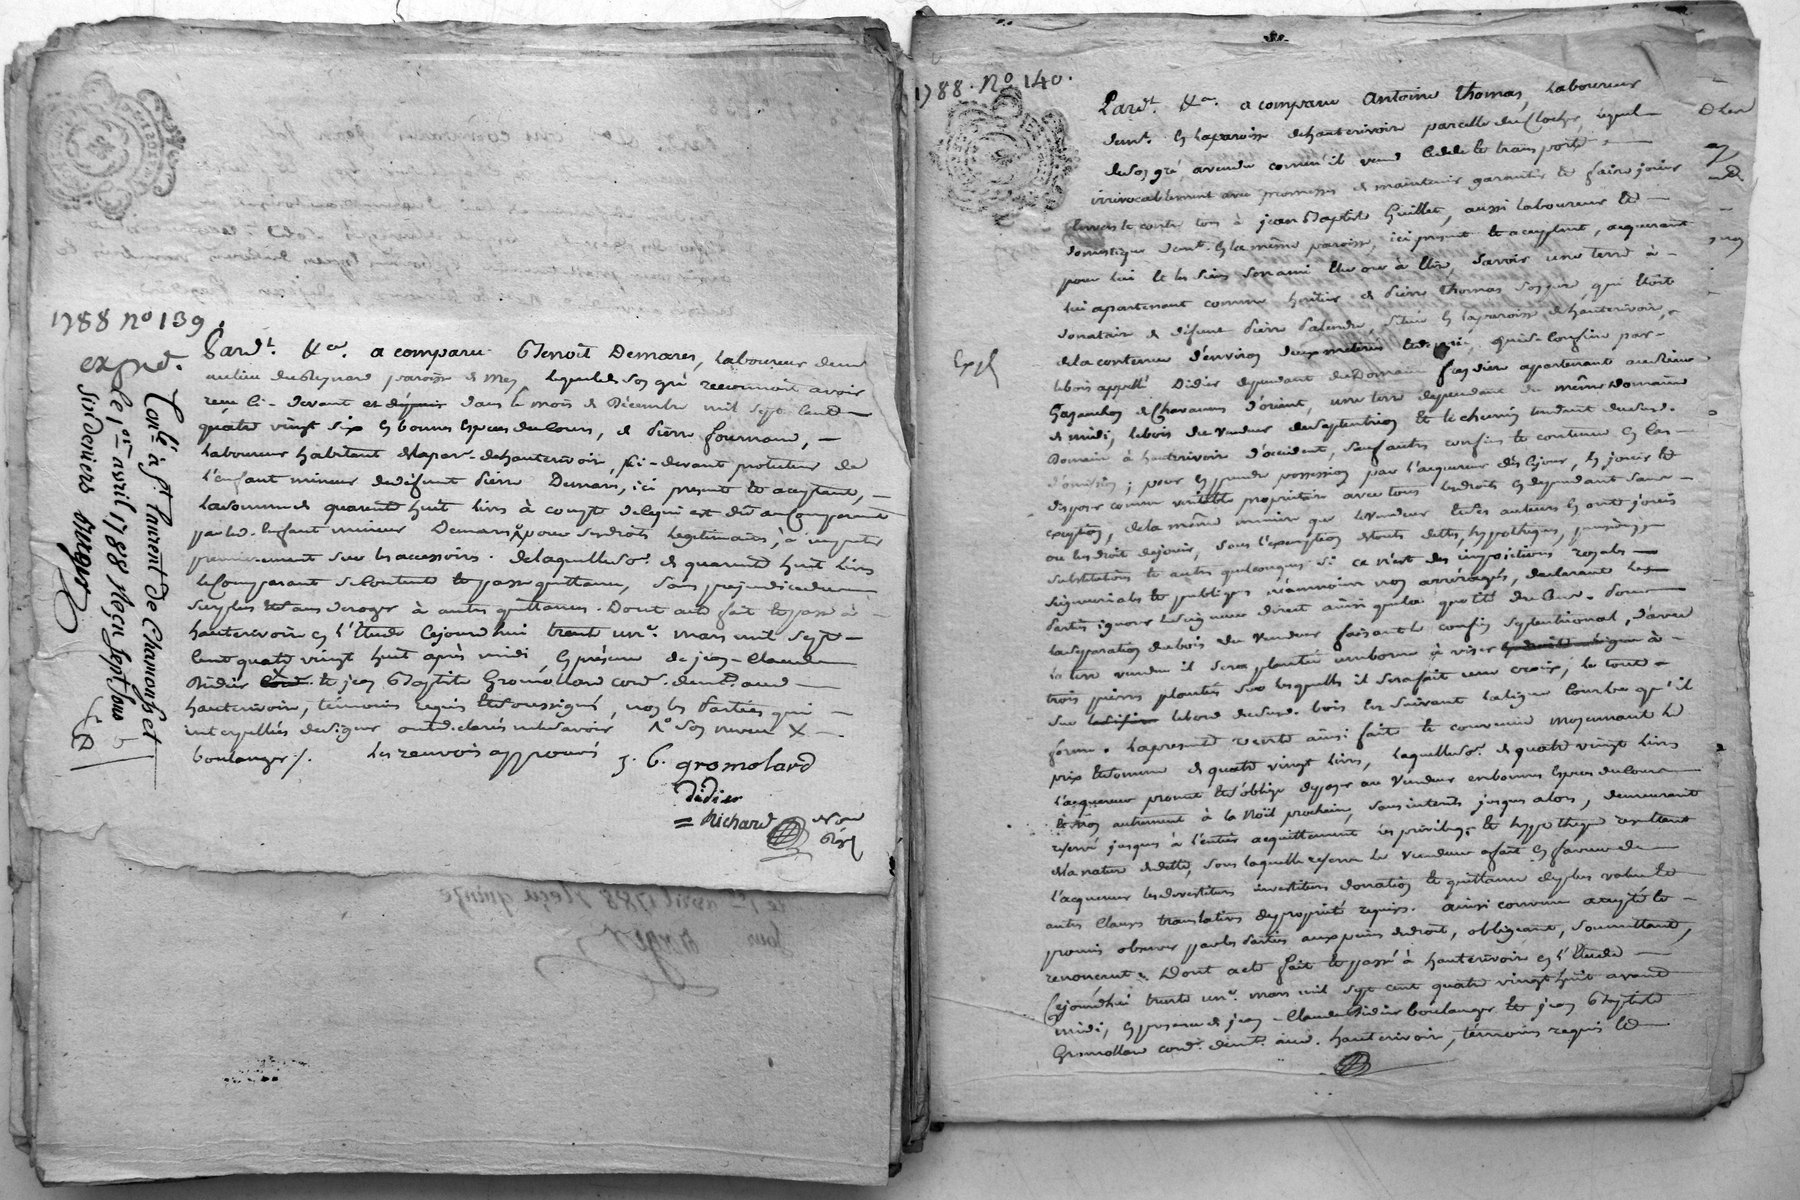 1788 no 139.
expéd.
Pardt. &ca. a comparu Benoît Demares, laboureur demt
au lieu du Reynard paroisse de Mey, lequel de son gré reconnoit avoir
recu ci-devant et depuis dans le mois de Décembre mil sept cent
quatre vingt six en bonnes espèces du cours, de Pierre fournand,
laboureur habitant de la par. de hauterivoir, ci-devant protuteur de
l'enfant mineur de défunt Pierre Demares, ici present et aceptant,
la somme de quarante huit livres à compte de ce qui est dû au Comparant
par led. enfant mineur Demares pour ses droits légitimaires, à imputer
premierement sur les accessoirs. de laquelle so. de quarante huit livres
le Comparant se Contente et passe quittance, sans prejudice du
surplus et sans deroger à autres quittances. Dont acte fait et passé à
hauterivoir en l'Etude Cejourd'hui trente unr. mars mil sept
cent quatre vingt huit après midi, en présence de jean-Claude
Didier cord. X et jean Baptiste Gromollard cordr. demt. aud.
hauterivoir, témoins requis et soussignés, non les Parties qui
interpellées de signer ont déclarés ne le savoir
X
boulanger /. les renvois approuvés
j. b. gromolard
didier
= Richard
Conlé à St Laurent de Chamousset
le 1er avril 1788 Reçu sept sous
six deniers
avril 1788 Reçu quinze
sous
1788. No 140.
Expé
Pardt. &ca. a comparu Antoine Thomas, laboureur
demt. en la paroisse de hauterivoir parcelle du Clocher, lequel
de son gré, a vendu comme il vend cède et transporte
irrévocablement avec promesses de maintenir garantir et faire jouir
envers et contre tous à jean Baptiste Guillet, aussi laboureur et
domestique demt. en la même paroisse, ici present et aceptant, aquerant
pour lui et les siens son ami élu ou à élire, savoir une terre à
lui apartenant comme heritier de Pierre Thomas son père qui étoit
donataire de défunt Pierre située en la paroisse de hauterivoir,
de la contenue d'environ deux métérées et demi, qui se confine par
le bois appellé Didier dépendant du Domaine apartenant au sieur
de Chavannes d'orient, une terre dependante du même Domaine
de midi, le bois du vendeur de septentrion et le chemin tendant dudit
Domaine à hauterivoir d'occident, sauf autres confins et contenue en cas
d'omission; pour en prendre possession par l'aquereur dès ce jour, en jouir et
disposer comme veritable proprietaire avec tous les droits en dependant sans
exception, de la même maniere que le vendeur et ses auteurs en ont jouis
ou eu droit de jouir, sous l'exemption de touts dettes, hypothèques, pensions,
substitutions et autres quelconques si ce n'est des impositions royales
seigneuriales et publiques neanmoins non arréragés, declarant les
Parties ignorer le seigneur direct ainsi que la quotité du Cens. Pour
la separation du bois du Vendeur faisant le confin septentrional, d'avec
la terre vendue il sera planté une borne à viser en ligne à
trois pierres plantées sur lesquelles il sera fait une croix; le tout
sur le bord dudit bois en suivant la ligne courbe qu'il
forme. La presente vente ainsi faite et convenue moyennant le
prix et somme de quatre vingt livres, laquelle so. de quatre vingt livres
l'aquereur promet et s'oblige de payer au Vendeur en bonnes espèces du Cours
et non autrement à la Noël prochaine, sans interêts jusques alors, demeurant
reservé jusques à l'entier acquittement les privileg. et hypothèque resultant
de la nature de dette, sous laquelle reserve le Vendeur a fait en faveur de
l'acquereur les devestiture investiture donation et quittance de plus value et
autres clauses translatives de proprieté requises. ainsi convenu accepté et
promis observer par les Parties aux peines de droit, obligeant, soumettant,
renonçant. Dont acte fait et passé à hauterivoir en l'Etude
Cejourd'hui trente unr. mars mil sept cent quatre vingt huit avant
midi, en presence de jean-Claude Didier boulanger et jean Baptiste
Gromollard cordr. demt. aud. hauterivoir, témoins requis et